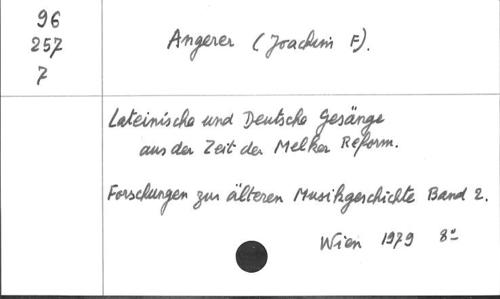 96
257
7
Angerer (Joachim F).
Lateinische und Deutsche Gesänge
aus der Zeit der Melker Reform.
Forschungen zur älteren Musikgeschichte Band 2.
Wien 1979 8°